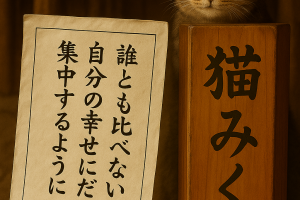 誰とも比べない
自分の幸せにだ
集中するように
猫みく